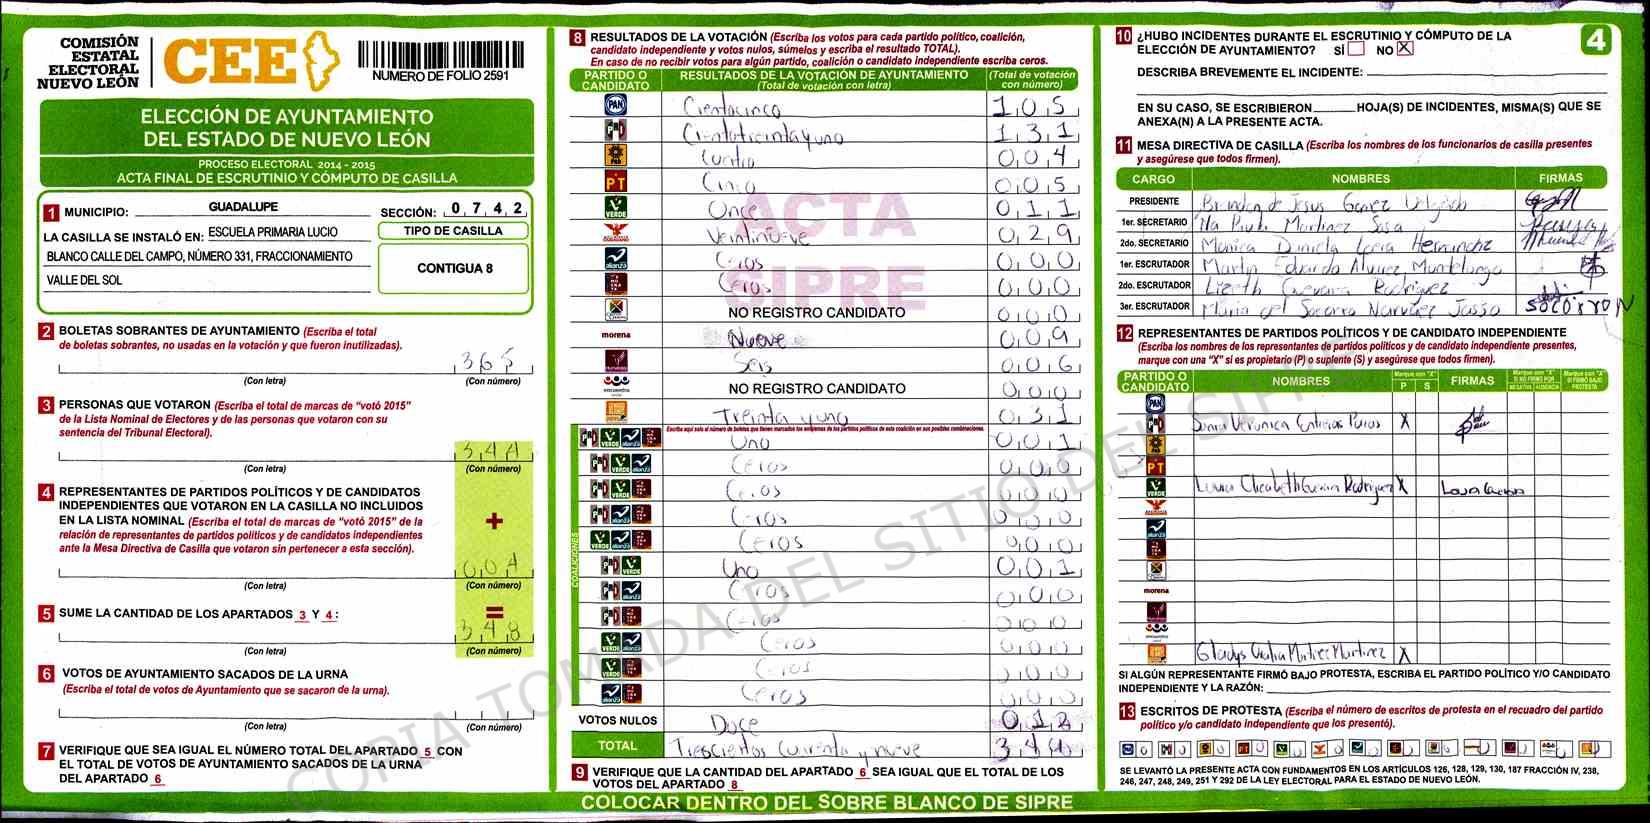 COMISIÓN
ESTATAL
ELECTORAL
NUEVO LEÓN
CEE
NUMERO DE FOLIO 2591
ELECCIÓN DE AYUNTAMIENTO
DEL ESTADO DE NUEVO LEÓN
PROCESO ELECTORAL 2014 - 2015
ACTA FINAL DE ESCRUTINIO Y CÓMPUTO DE CASILLA
1 MUNICIPIO: GUADALUPE SECCIÓN: 0 7 4 2
LA CASILLA SE INSTALÓ EN: ESCUELA PRIMARIA LUCIO
BLANCO CALLE DEL CAMPO, NÚMERO 331, FRACCIONAMIENTO
VALLE DEL SOL
TIPO DE CASILLA
CONTIGUA 8
2 BOLETAS SOBRANTES DE AYUNTAMIENTO (Escriba el total
de boletas sobrantes, no usadas en la votación y que fueron inutilizadas).
365
(Con letra) (Con número)
3 PERSONAS QUE VOTARON (Escriba el total de marcas de “votó 2015”
de la Lista Nominal de Electores y de las personas que votaron con su
sentencia del Tribunal Electoral).
344
(Con letra) (Con número)
4 REPRESENTANTES DE PARTIDOS POLÍTICOS Y DE CANDIDATOS
INDEPENDIENTES QUE VOTARON EN LA CASILLA NO INCLUIDOS
EN LA LISTA NOMINAL (Escriba el total de marcas de “votó 2015” de la
relación de representantes de partidos políticos y de candidatos independientes
ante la Mesa Directiva de Casilla que votaron sin pertenecer a esta sección).
+
004
(Con letra) (Con número)
5 SUME LA CANTIDAD DE LOS APARTADOS 3 Y 4:
=
348
(Con letra) (Con número)
6 VOTOS DE AYUNTAMIENTO SACADOS DE LA URNA
(Escriba el total de votos de Ayuntamiento que se sacaron de la urna).
(Con letra) (Con número)
7 VERIFIQUE QUE SEA IGUAL EL NÚMERO TOTAL DEL APARTADO 5 CON
EL TOTAL DE VOTOS DE AYUNTAMIENTO SACADOS DE LA URNA
DEL APARTADO 6
8 RESULTADOS DE LA VOTACIÓN (Escriba los votos para cada partido político, coalición,
candidato independiente y votos nulos, súmelos y escriba el resultado TOTAL).
En caso de no recibir votos para algún partido, coalición o candidato independiente escriba ceros.
PARTIDO O CANDIDATO
RESULTADOS DE LA VOTACIÓN DE AYUNTAMIENTO
(Total de votación con letra)
(Total de votación con número)
PAN Cientocinco 105
PRI Cientotreintayuno 131
PRD Cuatro 004
PT Cinco 005
VERDE Once 011
Veintinueve 029
alianza Ceros 000
Ceros 000
NO REGISTRO CANDIDATO 000
morena Nueve 009
Seis 006
NO REGISTRO CANDIDATO 000
Treinta y uno 031
COALICIONES
Uno 001
Ceros 000
Ceros 000
Ceros 000
Ceros 000
Uno 001
Ceros 000
Ceros 000
Ceros 000
Ceros 000
Ceros 000
VOTOS NULOS Doce 012
TOTAL Trescientos cuarenta y nueve
ACTA
SIPRE
9 VERIFIQUE QUE LA CANTIDAD DEL APARTADO 6 SEA IGUAL QUE EL TOTAL DE LOS
VOTOS DEL APARTADO 8
COLOCAR DENTRO DEL SOBRE BLANCO DE SIPRE
10 ¿HUBO INCIDENTES DURANTE EL ESCRUTINIO Y CÓMPUTO DE LA
ELECCIÓN DE AYUNTAMIENTO? SÍ NO X
4
DESCRIBA BREVEMENTE EL INCIDENTE:
EN SU CASO, SE ESCRIBIERON HOJA(S) DE INCIDENTES, MISMA(S) QUE SE
ANEXA(N) A LA PRESENTE ACTA.
11 MESA DIRECTIVA DE CASILLA (Escriba los nombres de los funcionarios de casilla presentes
y asegúrese que todos firmen).
CARGO NOMBRES FIRMAS
PRESIDENTE Brandon de Jesus Gomez Delgado
1er. SECRETARIO Martinez Sosa
2do. SECRETARIO Monica Daniela Loera Hernandez
1er. ESCRUTADOR Martin Eduardo Alvarez Mondelongo
2do. ESCRUTADOR Lizeth Guevara Rodriguez
3er. ESCRUTADOR Maria del Socorro Narvaez Jasso SOCORRO N
12 REPRESENTANTES DE PARTIDOS POLÍTICOS Y DE CANDIDATO INDEPENDIENTE
(Escriba los nombres de los representantes de partidos políticos y de candidato independiente presentes,
marque con una “X” si es propietario (P) o suplente (S) y asegúrese que todos firmen).
PARTIDO O CANDIDATO NOMBRES P S FIRMAS
Veronica X
Laura Elizabeth Guevara Rodriguez X
morena
Gladys Martinez X
SI ALGÚN REPRESENTANTE FIRMÓ BAJO PROTESTA, ESCRIBA EL PARTIDO POLÍTICO Y/O CANDIDATO
INDEPENDIENTE Y LA RAZÓN:
13 ESCRITOS DE PROTESTA (Escriba el número de escritos de protesta en el recuadro del partido
político y/o candidato independiente que los presentó).
SE LEVANTÓ LA PRESENTE ACTA CON FUNDAMENTOS EN LOS ARTÍCULOS 126, 128, 129, 130, 187 FRACCIÓN IV, 238,
246, 247, 248, 249, 251 Y 292 DE LA LEY ELECTORAL PARA EL ESTADO DE NUEVO LEÓN.
COPIA TOMADA DEL SITIO DEL SIPRE